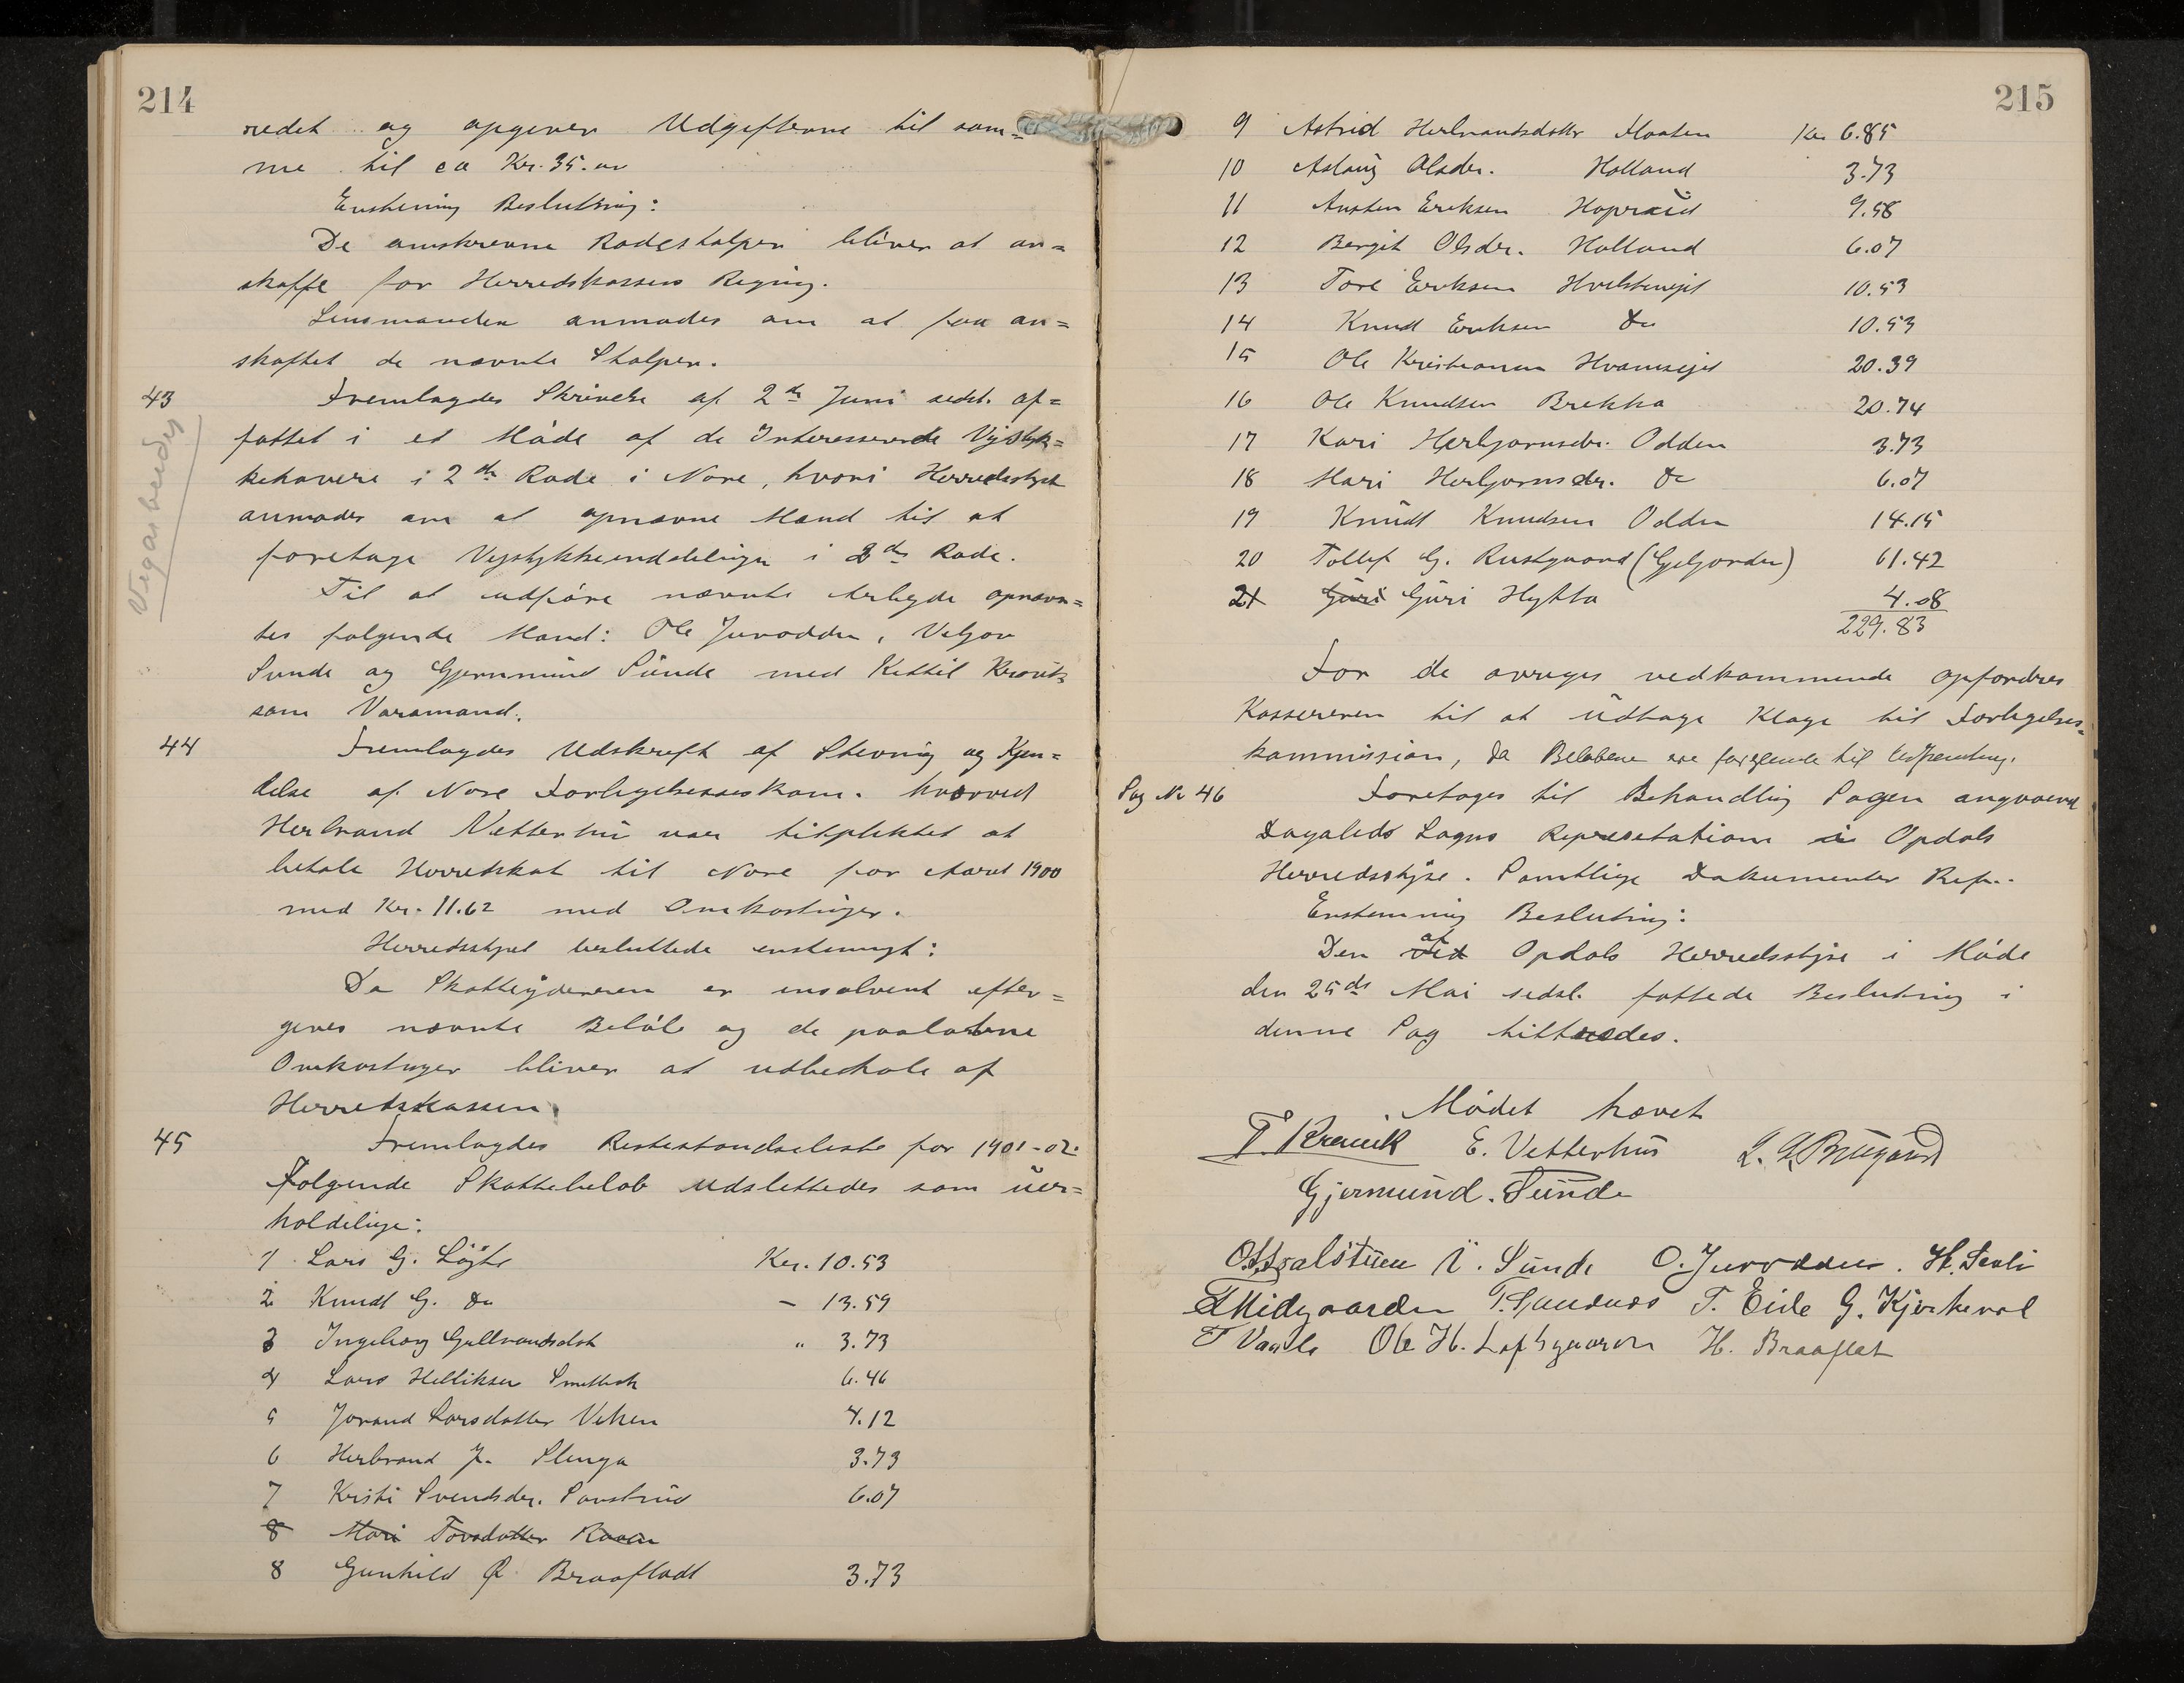 214
redet og opgiver Udgifterne til sam=
me til ca Kr. 35.00
Enstemig Beslutning:
De omskrevne Rodestolper bliver at an=
skaffe for Herredskassens Regning.
Lensmanden anmodes om at faa an=
skaffet de nævnte Stolper.
43 Fremlagdes Skrivelse af 2den Juni sidstl. af=
fattet i et Møde af de Interesserende Vejstyk=
kehavere i 2den Rode i Nore, hvori Herredsstyret
anmodes om at opnævne Mænd til at
foretage Vejstykkeinddelingen i 2den Rode.
Vegarbeider
Til at udføre nævnte Arbejde opnævn=
tes følgende Mænd: Ole Juvodden, Veljor
Sunde og Gjermund Sunde med Kittil
som Varamand.
44 Fremlagdes Udskrift af Stevning og Kjen=
delse af Nore Forligelseskom. hvorved
Herbrand Vetterhus var tilpliktet at
betale Herredskat til Nore for Aaret 1900
med Kr. 11.62 med Omkostninger.
Herredsstyret besluttede enstemigt:
Da Skatteyderen er insolvent efter=
gives nævnte Beløb og de paaløbne
Omkostninger bliver at udbetale af
Herredskassen.
45 Fremlagdes Restestandseliste for 1901-02.
Følgende Skattebeløb udslettedes som uer=
holdelige:
1 Lars G. Kr. 10.53
2 Knudt G. Do — 13.59
3 Ingeborg Gullbrandsdatt " 3.73
4 Lars Helliksen 6.46
5 Jorand Larsdatter Viken 4.12
6 Herbrand J. Slenga 3.73
7 Kristi Svendsdr. 6.07
8 Mari Torsdatter
8 Gunhild Ø. Braafladt 3.73
215
9 Astrid Herbrandsdottr Kr 6.85
10 Aslaug Olsdr.Holland 3.73
11 Austen Eriksen 9.58
12 Bergit Olsdr. Holland 6.07
13 Tore Eriksen 10.53
14 Knud Eriksen Do 10.53
15 Ole Kristiansen 20.39
16 Ole Knudsen Brekka 20.74
17 Kari Herbjørnsdr. Odden 3.73
18 Mari Herbjørnsdr. Do 6.07
19 Knudt Knudsen Odden 14.15
20 Tollef G. Rustgaard 61.42
21 Guri Guri Hytta 4.08
229.83
For de øvriges vedkommende opfordres
Kassereren til at udtage Klage til Forligelses=
kommission, da Beløbene ere til Udpantning.
Sag No 46 Foretoges til Behandling Sagen angaaende
Dagalids Sogns Representation i Opdals
Herredsstyre. Samtlige Dokumenter Ref..
Enstemmig Beslutning:
Den ved af Opdals Herredsstyre i Møde
den 25de Mai sidstl. fattede Beslutning i
denne Sag tiltrædes.
Mødet hævet
E. Vetterhus
Gjermund. Sunde
V. Sunde O. Juvodden. H.
T. Eide G.
Ole H. Loftsgaarden H. Braaflat